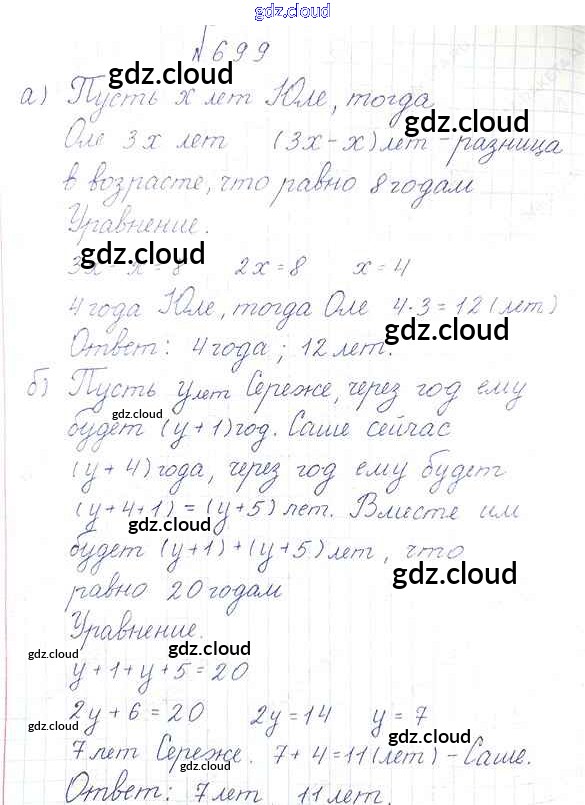 gdz.cloud
№ 699
а) Пусть x лет Юле, тогда
gdz.cloud
Оле 3x лет (3x-x) лет - разница
gdz.cloud
в возрасте, что равно 8 годам
Уравнение.
gdz.cloud
3x - x = 8 2x = 8 x = 4
4 года Юле, тогда Оле 4·3=12 (лет)
gdz.cloud
Ответ: 4 года; 12 лет.
б) Пусть y лет Сереже, через год ему
gdz.cloud
будет (y+1) год. Саше сейчас
(y+4) года, через год ему будет
(y+4+1) = (y+5) лет. Вместе им
gdz.cloud
будет (y+1)+(y+5) лет, что
gdz.cloud
равно 20 годам
Уравнение.
gdz.cloud gdz.cloud
y+1+y+5=20
2y+6=20 2y=14 y=7
gdz.cloud gdz.cloud
7 лет Сереже. 7+4=11 (лет) - Саше.
Ответ: 7 лет 11 лет.
gdz.cloud